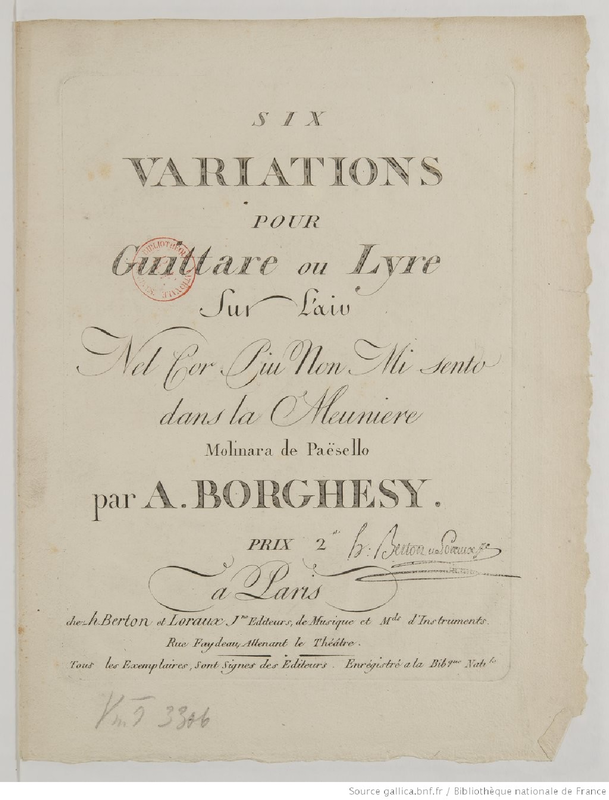 SIX
VARIATIONS
POUR
Guittare ou Lyre
Sur L'air
Nel Cor Piu Non Mi sento
dans la Meuniere
Molinara de Paësello
par A. BORGHESY.
PRIX 2ᵗ
h. Berton et Loraux Jne
à Paris
chez h. Berton et Loraux, Jne Editeurs, de Musique et Mds d'Instruments.
Rue Faydeau, Attenant le Théâtre.
Tous les Exemplaires, Sont Signes des Editeurs. Enrégistré a la Bibque Natle
Vm9
Source gallica.bnf.fr / Bibliothèque nationale de France